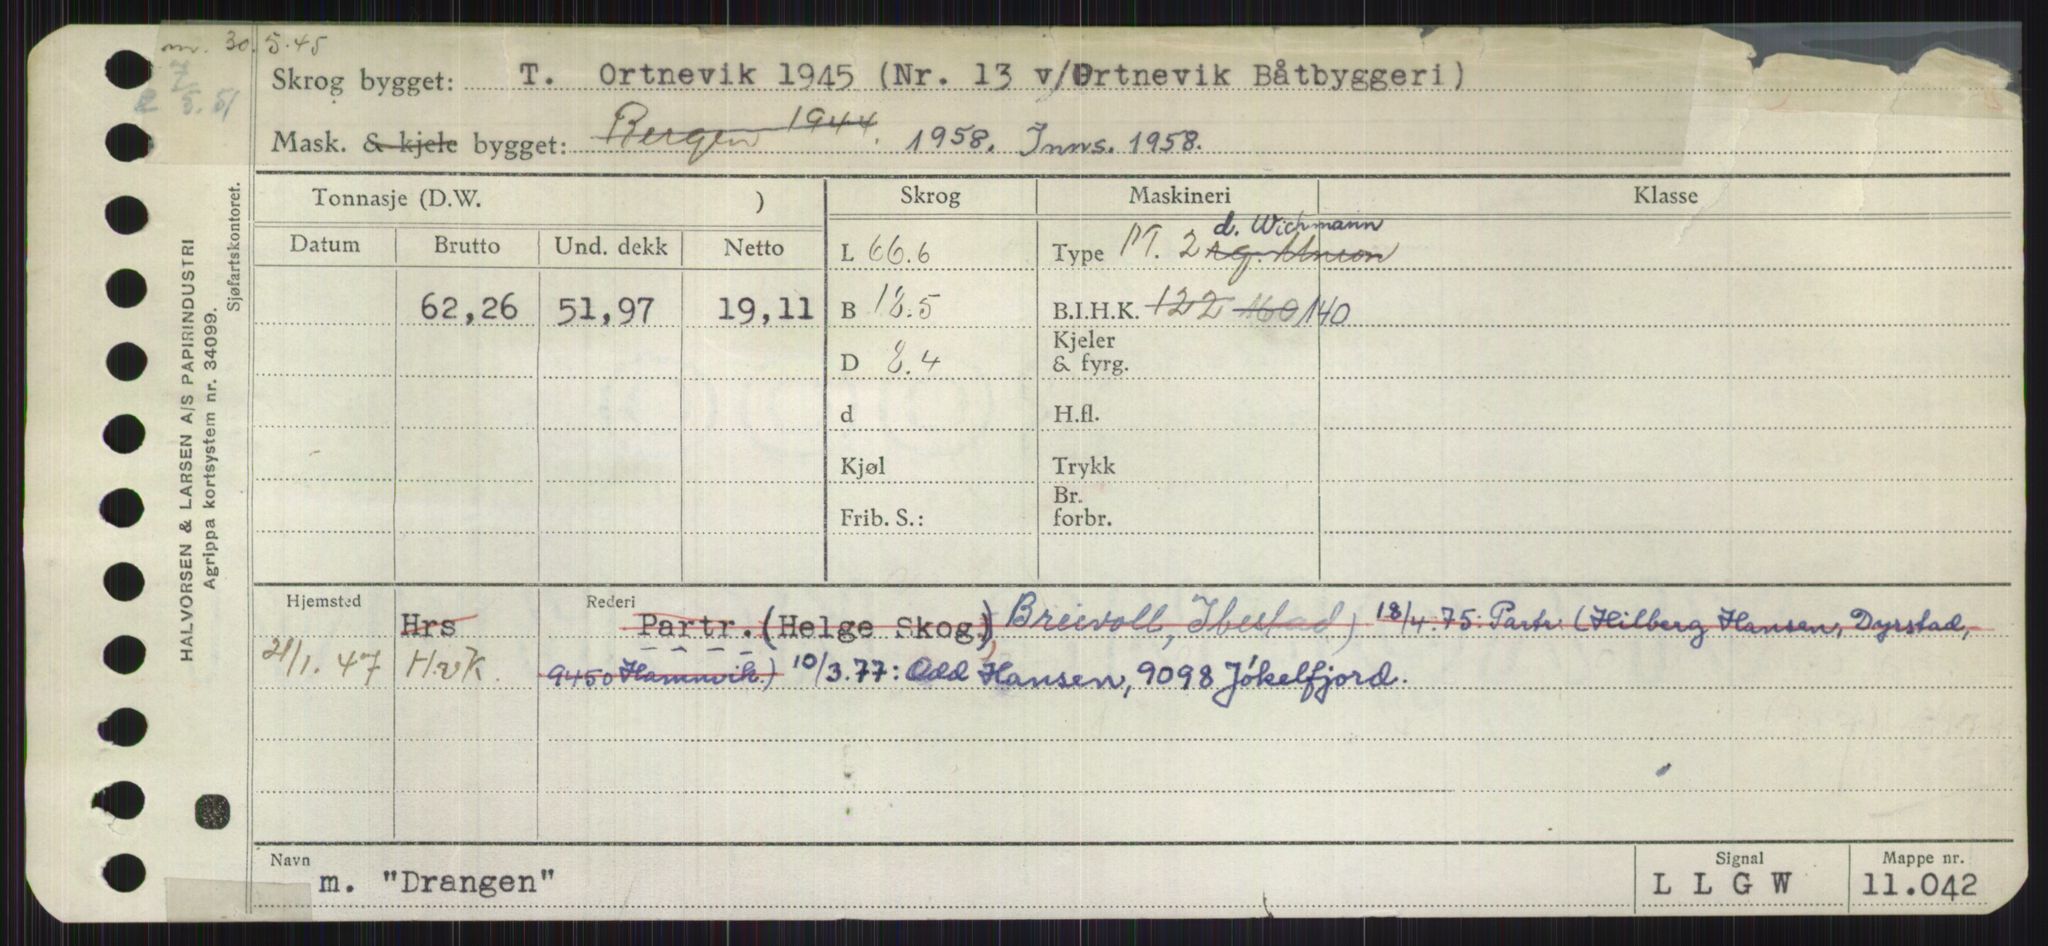 m. 30.5.45
7/5.51
Skrog bygget: T. Ortnevik 1945 (Nr. 13 v/Ortnevik Båtbyggeri)
Mask. & kjele bygget: Bergen 1944. 1958. Inns. 1958.
Tonnasje (D.W. ) Skrog Maskineri Klasse
Datum Brutto Und. dekk Netto
L 66.6
Type M. 2 d. Wichmann
B.I.H.K. 122 160 140
62,26 51,97 19,11
B 18.5
Kjeler & fyrg.
D 8.4
d
H.fl.
Kjøl
Trykk
Br. forbr.
Frib. S.:
Hjemsted Rederi
Hrs Partr. (Helge Skog) Breivoll, Ibestad) 18/4.75: Partr. (Hilberg Hansen, Dyrstad,
21/1.47 H.v.K. 9450 Hamnvik.) 10/3.77: Odd Hansen, 9098 Jøkelfjord.
Navn Signal Mappe nr.
m. "Drangen" L L G W 11.042
HALVORSEN & LARSEN A/S PAPIRINDUSTRI
Agrippa kortsystem nr. 34099.
Sjøfartskontoret.